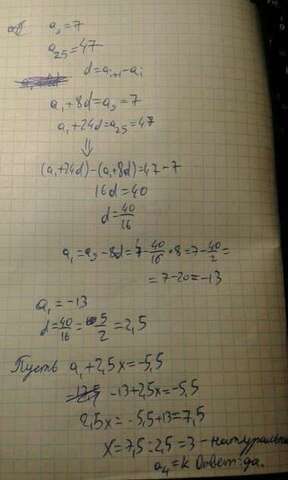 a₉=7
a₂₅=47
d=aᵢ₊₁-aᵢ
a₁+8d=a₉=7
a₁+24d=a₂₅=47
⇓
(a₁+24d)-(a₁+8d)=47-7
16d=40
d=40/16
a₁=a₉-8d=7-40/16*8=7-40/2=
=7-20=-13
a₁=-13
d=40/16=5/2=2,5
Пусть a₁+2,5x=-5,5
-13+2,5x=-5,5
2,5x=-5,5+13=7,5
x=7,5:2,5=3-натуральн
a₄=k Ответ: да.